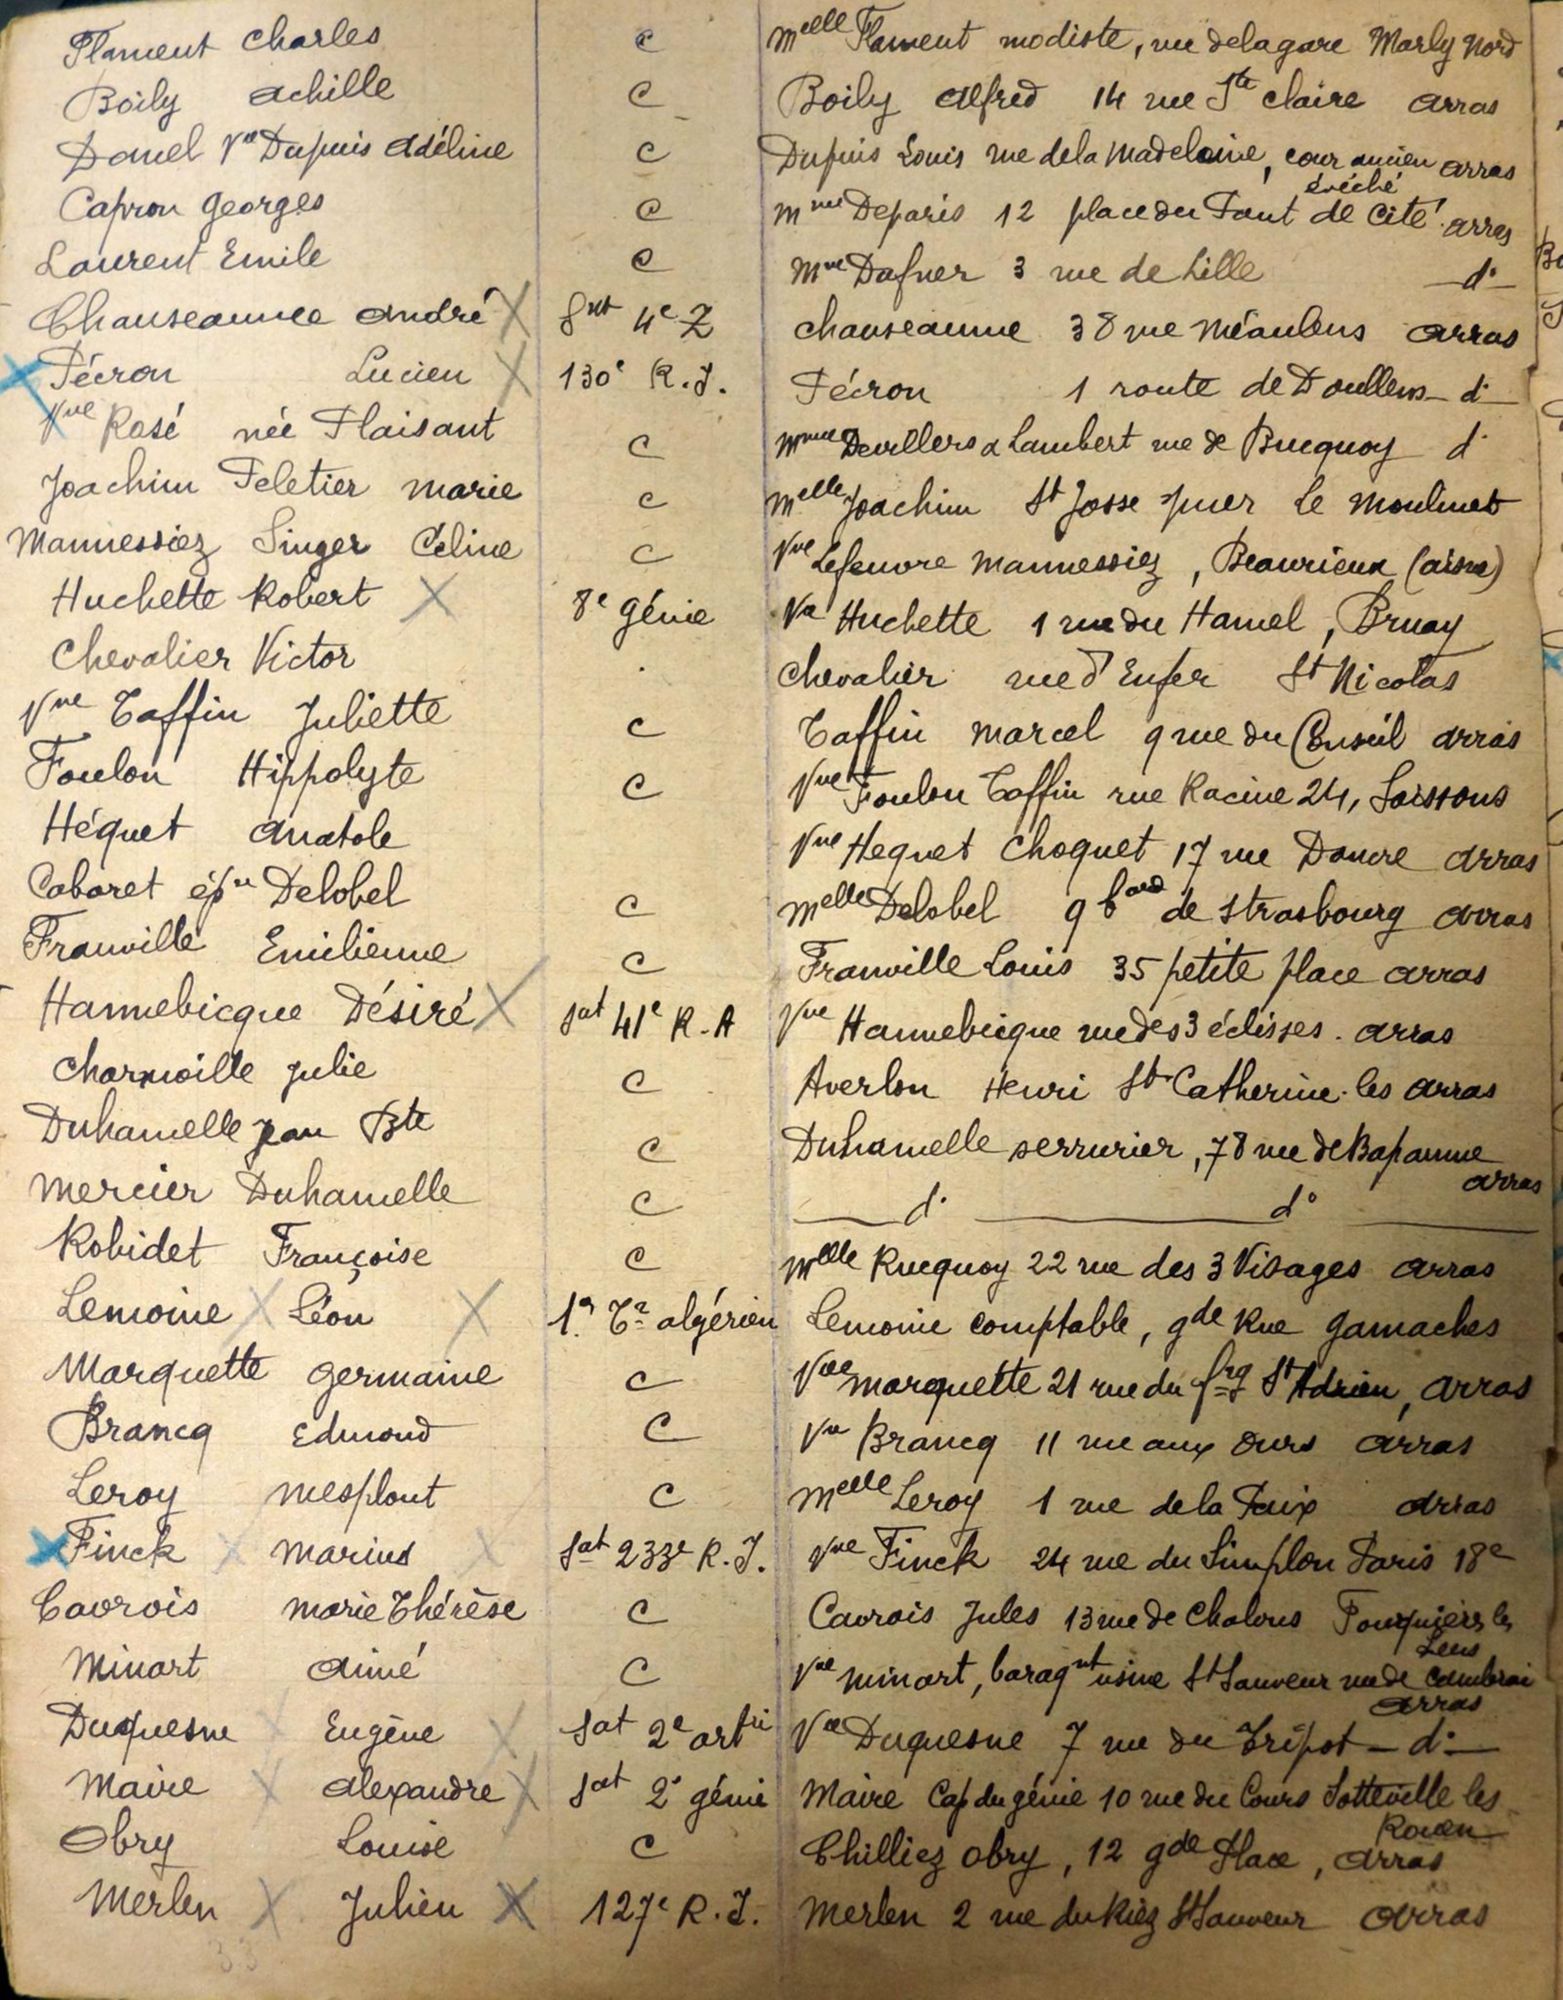 Flament Charles C Melle Flament modiste, rue de la gare Marly Nord
Boily Achille C Boily Alfred 14 rue Ste Claire Arras
Danel Ve Dupuis Adéline C Dupuis Louis rue de la Madeleine, cour ancien Arras
évêché
Capron Georges C Mme Deparis 12 place du Pont de Cité Arras
Laurent Emile C Mme Dafner 3 rue de Lille d°
Chauseaunce André X 8 4e Z Chanseaume 38 rue Méaulens Arras
X Pécron Lucien X 130e R.I. Pécron 1 route de Doullens d°
Vve Rosé née Plaisant C Mme Devillers & Lambert rue de Bucquoy d°
Joachim Peletier Marie C Melle Joachim St Josse s/mer Le Moulinet
Mannessiez Singer Céline C Vve Lefeuvre Mannessiez, Beaurieux (Aisne)
Huchette Robert X 8e Génie Ve Huchette 1 rue du Hamel, Bruay
Chevalier Victor Chevalier rue d'Enfer St Nicolas
Vve Taffin Juliette C Taffin Marcel 9 rue du Conseil Arras
Foulon Hippolyte C Vve Foulon Taffin rue Racine 24, Soissons
Héquet Anatole Vve Hequet Choquet 17 rue Doncre Arras
Cabaret épse Delobel C Melle Delobel 9 bard de Strasbourg Arras
Franville Emilienne C Franville Louis 35 petite place Arras
Hannebicque Désiré X sat 41e R.A Vve Hannebicque rue des 3 éclisses. Arras
Charmoille Julie C Averlon Henri Ste Catherine-les Arras
Duhamelle Jean Bte C Duhamelle serrurier, 78 rue de Bapaume
Arras
Mercier Duhamelle C d° d°
Robidet Françoise C Melle Rucquoy 22 rue des 3 Visages Arras
Lemoine X Léon X 1er Tr algérien Lemoine comptable, gde Rue Gamaches
Marquette Germaine C Vve Marquette 21 rue du fbg St Adrien, Arras
Brancq Edmond C Ve Brancq 11 rue aux Ours Arras
Leroy Mesplout C Melle Leroy 1 rue de la Paix Arras
X Finck X Marius X sat 233e R.I. Vve Finck 24 rue du Simplon Paris 18e
Cavrois Marie Thérèse C Cavrois Jules 13 rue de Chalons Fouquières les
Lens
Minart Aimé C Vve Minart, baraqnt usine St Sauveur rue de Cambrai
Arras
Duquesne X Eugène X sat 2e artri Vve Duquesne 7 rue du Tripot d°
Maire X Alexandre X sat 2e génie Maire Cap du génie 10 rue du Cours Sotteville les
Rouen
Obry Louise C Chilliez Obry, 12 gde Place, Arras
Merlen X Julien X 127e R.I. Merlen 2 rue du Riez St Sauveur Arras
33